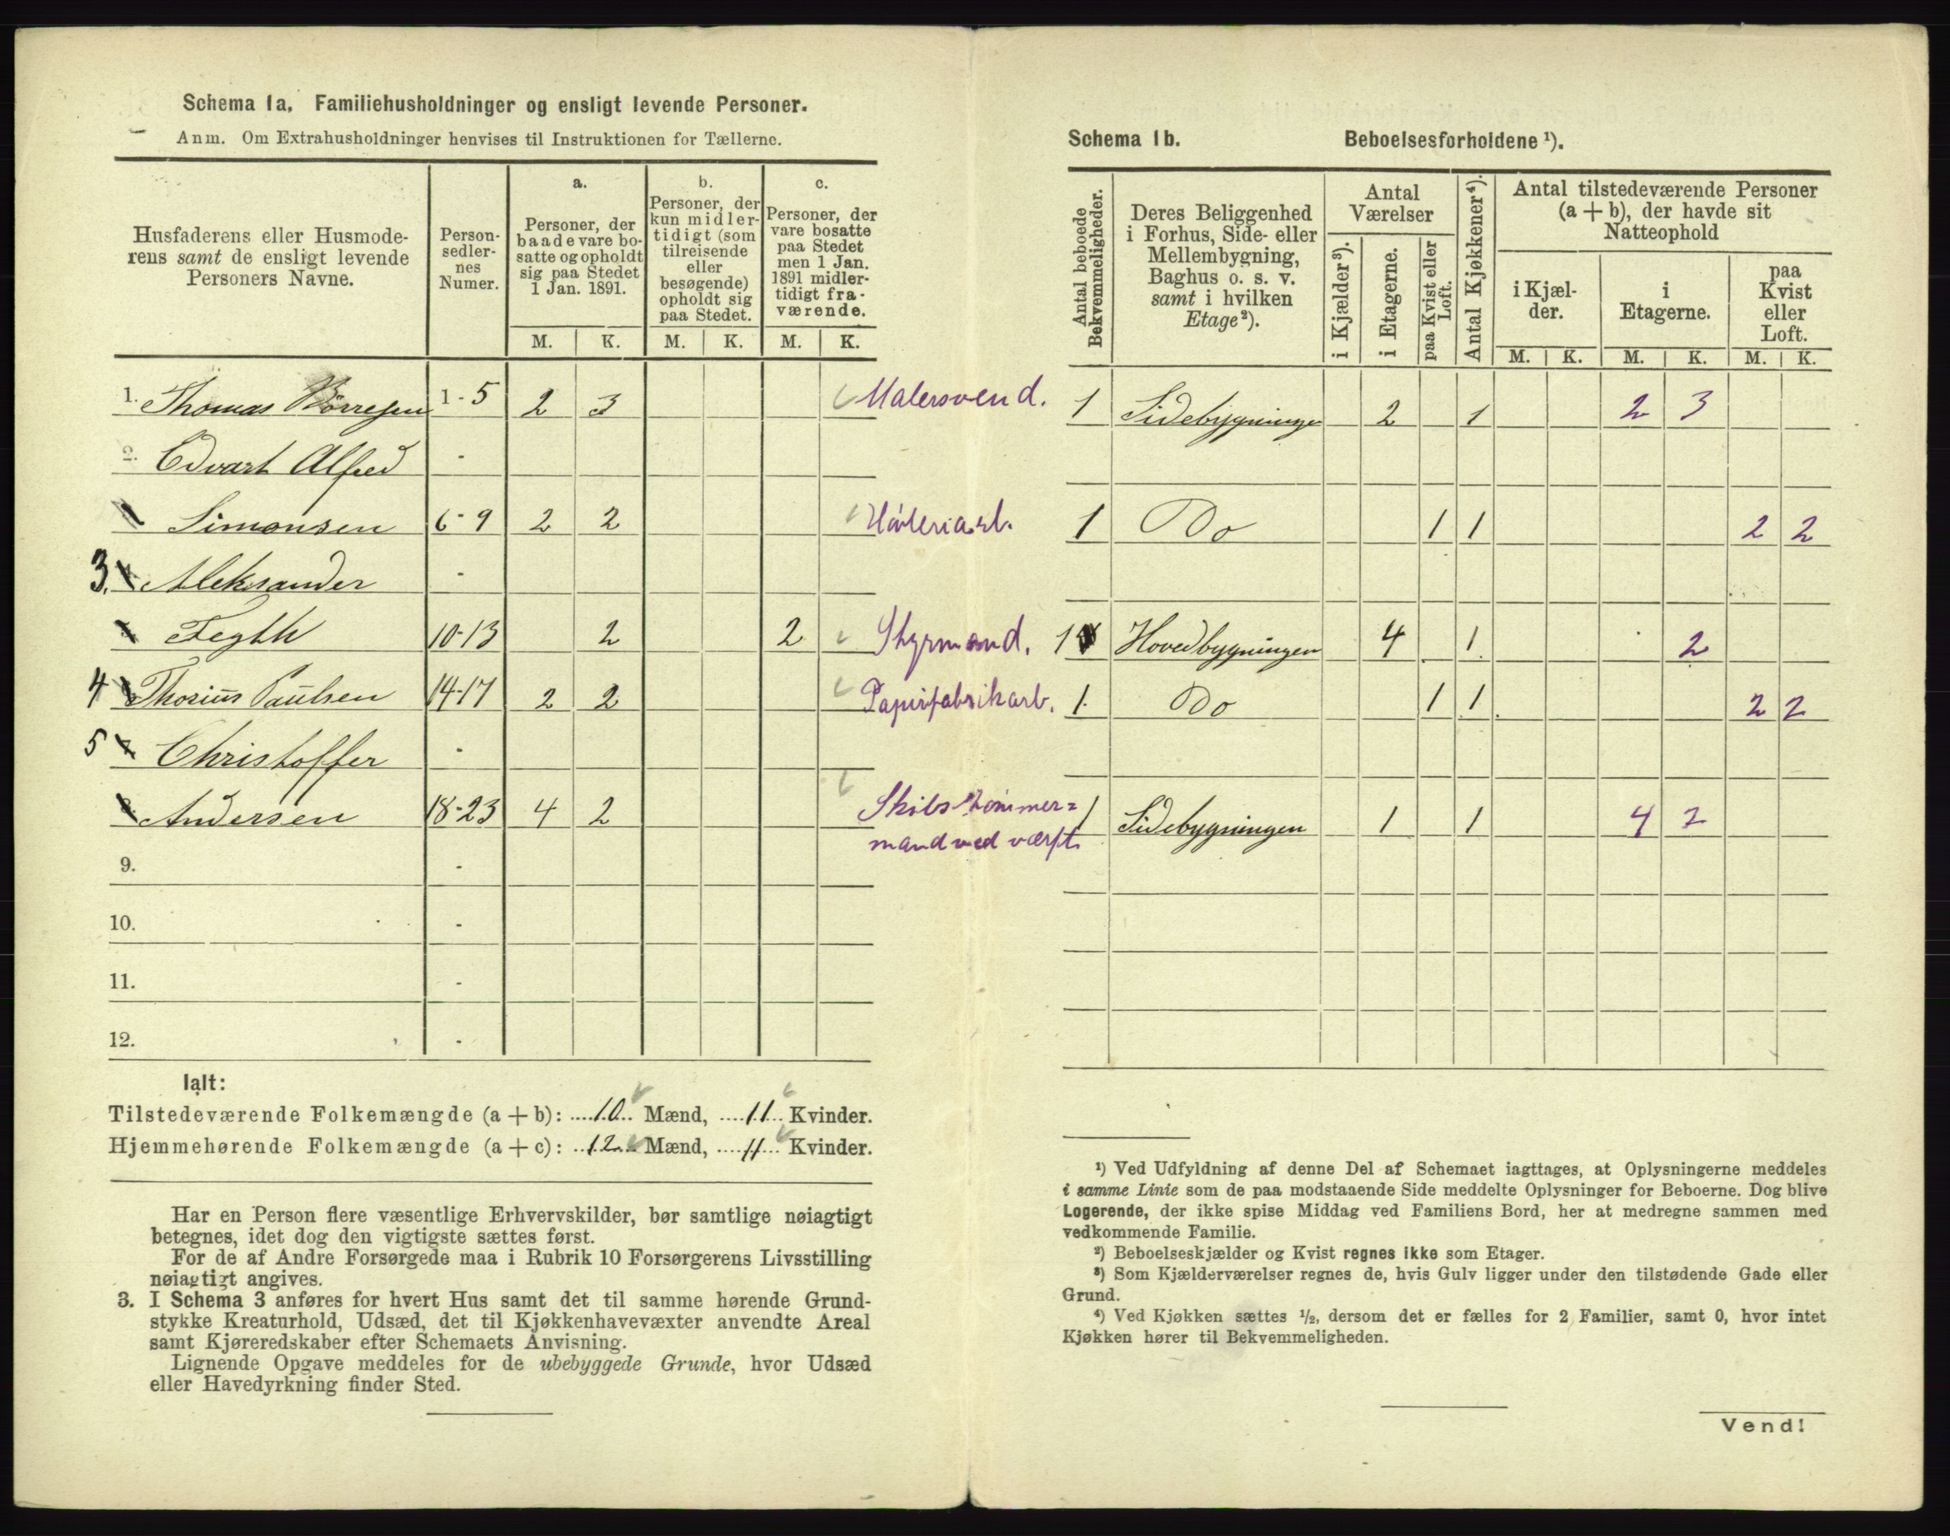 Schema 1a. Familiehusholdninger og ensligt levende Personer.
Anm. Om Extrahusholdninger henvises til Instruktionen for Tællerne.
Husfaderens eller Husmode-
rens samt de ensligt levende
Personers Navne.
Person-
sedler-
nes
Numer.
a.
Personer, der
baade vare bo-
satte og opholdt
sig paa Stedet
1 Jan. 1891.
b.
Personer, der
kun midler-
tidigt (som
tilreisende
eller
besøgende)
opholdt sig
paa Stedet.
c.
Personer, der
vare bosatte
paa Stedet
men 1 Jan.
1891 midler-
tidigt fra-
værende.
M. K. M. K. M. K.
1. Thomas Børresen 1-5 2 3 Malersvend.
2. Edvart Alfred -
Simonsen 6-9 2 2
3. Aleksander -
Fegth 10-13 2 2 Styrmand.
4 Thorius Paulsen 14-17 2 2 Papirfabrikarb.
5 Christoffer -
8. Andersen 18-23 4 2 Skibstømmer=
mand ved værft.
9. -
10. -
11. -
12. -
Ialt:
Tilstedeværende Folkemængde (a+b): 10 Mænd, 11 Kvinder.
Hjemmehørende Folkemængde (a+c): 12 Mænd, 11 Kvinder.
Har en Person flere væsentlige Erhvervskilder, bør samtlige nøiagtigt
betegnes, idet dog den vigtigste sættes først.
For de af Andre Forsørgede maa i Rubrik 10 Forsørgerens Livsstilling
nøiagtigt angives.
3. I Schema 3 anføres for hvert Hus samt det til samme hørende Grund-
stykke Kreaturhold, Udsæd, det til Kjøkkenhavevæxter anvendte Areal
samt Kjøreredskaber efter Schemaets Anvisning.
Lignende Opgave meddeles for de ubebyggede Grunde, hvor Udsæd
eller Havedyrkning finder Sted.
Schema 1b. Beboelsesforholdene ¹).
Antal beboede
Bekvemmeligheder.
Deres Beliggenhed
i Forhus, Side- eller
Mellembygning,
Baghus o. s. v.
samt i hvilken
Etage²).
Antal
Værelser
i Kjælder³).
i Etagerne.
paa Kvist eller
Loft.
Antal Kjøkkener⁴).
Antal tilstedeværende Personer
(a+b), der havde sit
Natteophold
i Kjæl-
der.
i
Etagerne.
paa
Kvist
eller
Loft.
M. K. M. K. M. K.
1 Sidebygninge 2 1 2 3
1 Do 1 1 2 2
1 Hovedbygningen 4 1 2
1. Do 1 1 2 2
1 Sidebygningen 1 1 4 2
¹) Ved Udfyldning af denne Del af Schemaet iagttages, at Oplysningerne meddeles
i samme Linie som de paa modstaaende Side meddelte Oplysninger for Beboerne. Dog blive
Logerende, der ikke spise Middag ved Familiens Bord, her at medregne sammen med
vedkommende Familie.
²) Beboelseskjælder og Kvist regnes ikke som Etager.
³) Som Kjælderværelser regnes de, hvis Gulv ligger under den tilstødende Gade eller
Grund.
⁴) Ved Kjøkken sættes ½, dersom det er fælles for 2 Familier, samt 0, hvor intet
Kjøkken hører til Bekvemmeligheden.
Vend!